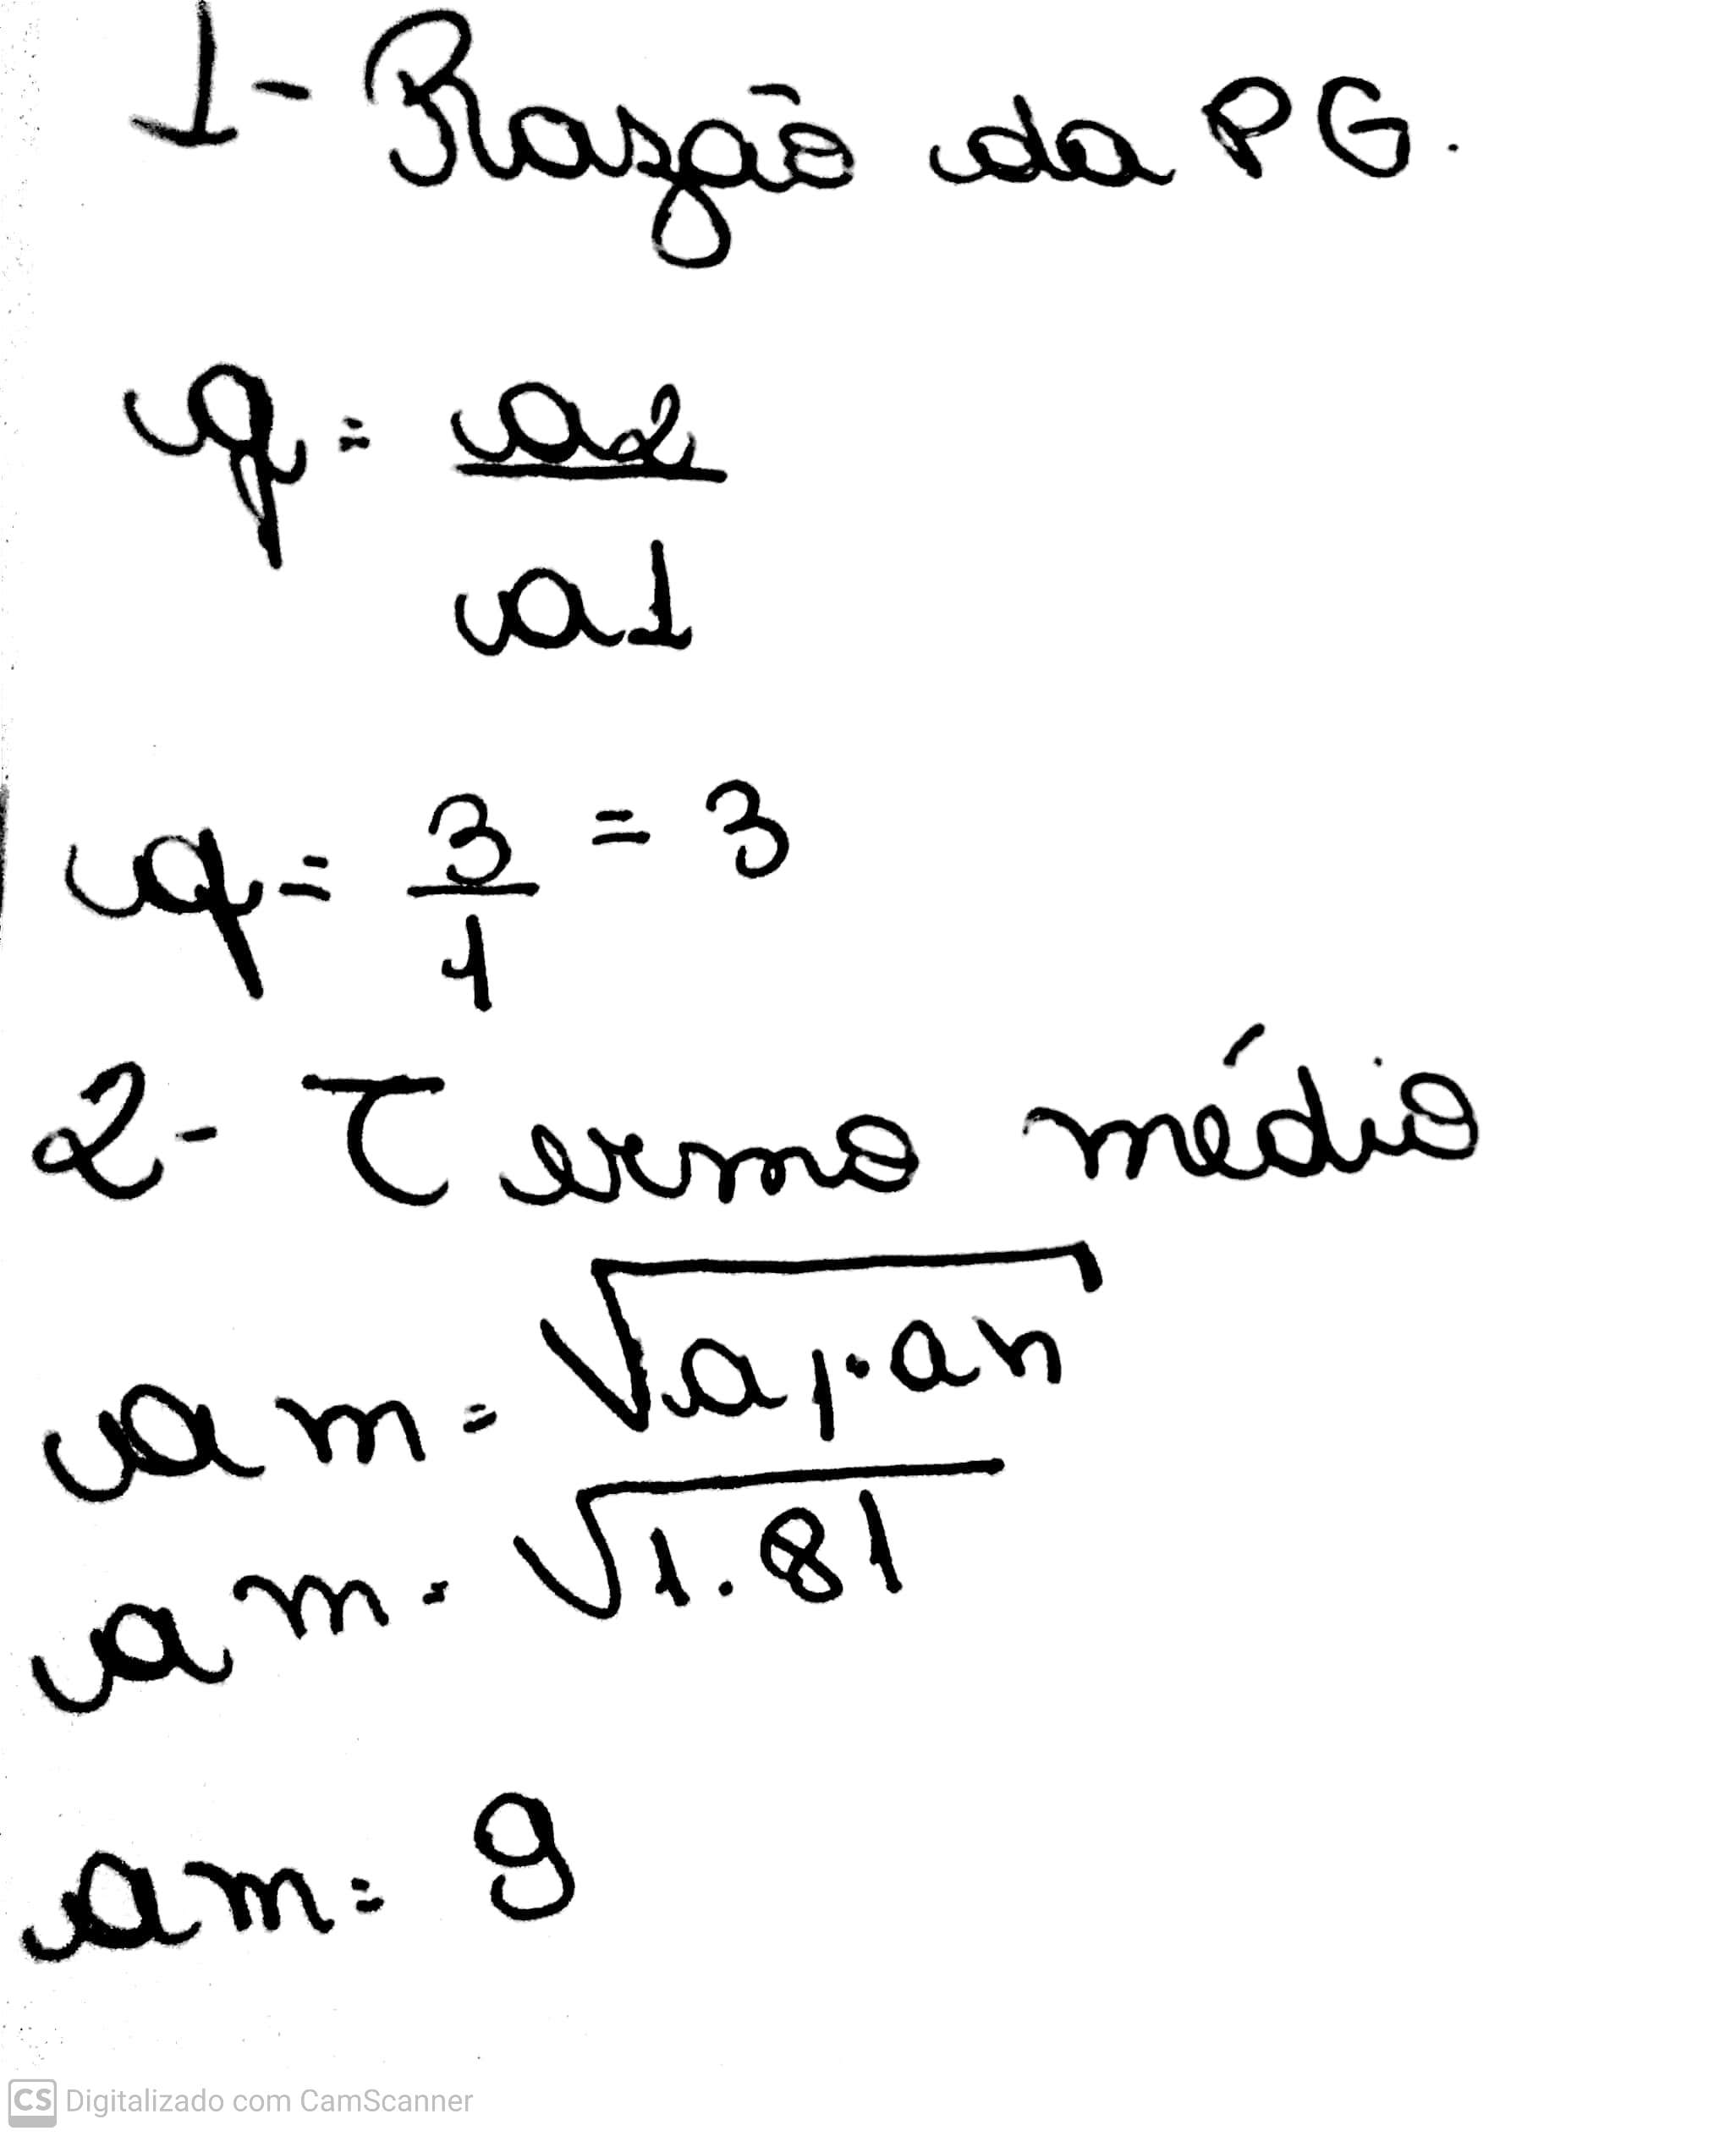 1- Razão da PG.
q = a2
a1
q = 3 = 3
1
2- Termo médio
am = √a1.an
am = √1.81
am = 9
CS Digitalizado com CamScanner